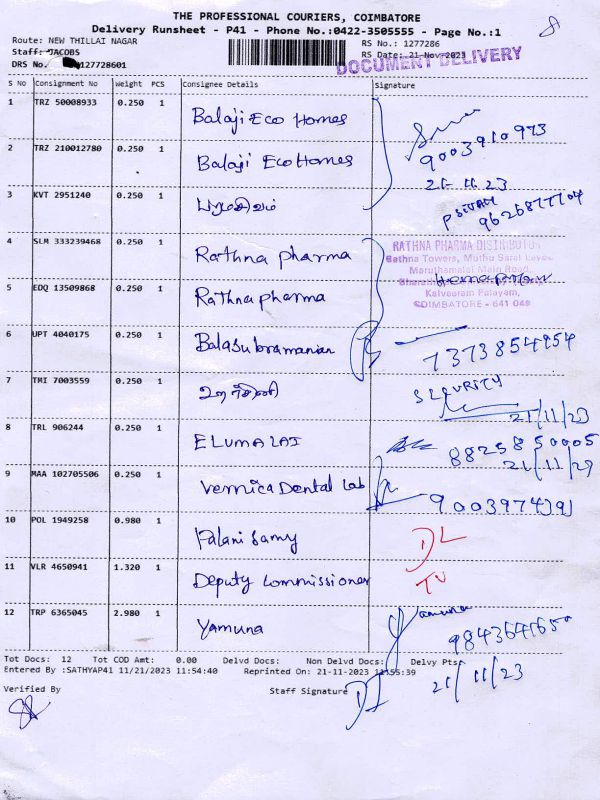 THE PROFESSIONAL COURIERS, COIMBATORE
Delivery Runsheet - P41 - Phone No.:0422-3505555 - Page No.:1
Route: NEW THILLAI NAGAR
RS No.: 1277286
Staff: JACOBS
RS Date: 21-Nov-2023
DRS No. 127728601
DOCUMENT DELIVERY
S No Consignment No Weight PCS Consignee Details Signature
1 TRZ 50008933 0.250 1 Balaji Eco Homes
9003910973
2 TRZ 210012780 0.250 1 Balaji Eco Homes
21-11-23
3 KVT 2951240 0.250 1
9626877704
4 SLM 333239468 0.250 1 Rathna pharma
RATHNA PHARMA DISTRIBUTOR
Rathna Towers, Muthu Saral Layout
Maruthamalai Main Road,
5 EDQ 13509868 0.250 1 Rathna pharma
Kalveeram Palayam,
COIMBATORE - 641 046
6 UPT 4040175 0.250 1 Balasubramanian
7373854954
7 TMI 7003559 0.250 1
SECURITY
21/11/23
8 TRL 906244 0.250 1 ELUMALAI
8825850005
21/11/23
9 MAA 102705506 0.250 1 Vernica Dental Lab
10 POL 1949258 0.980 1 Palani Samy DL
11 VLR 4650941 1.320 1 Deputy Commissioner
12 TRP 6365045 2.980 1 Yamuna
Yamuna
Tot Docs: 12 Tot COD Amt: 0.00 Delvd Docs: Non Delvd Docs: Delvy Pts:
Entered By :SATHYAP41 11/21/2023 11:54:40 Reprinted On: 21-11-2023 11:55:39
21/11/23
Verified By Staff Signature